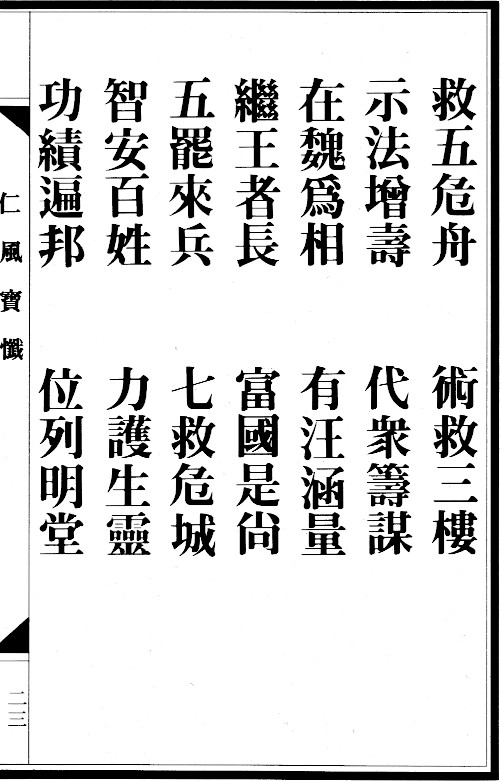 救五危舟　術救三樓
示法增壽　代衆籌謀
在魏爲相　有汪涵量
繼王者長　富國是尙
五罷來兵　七救危城
智安百姓　力護生靈
功績遍邦　位列明堂
仁風寶懺
二三